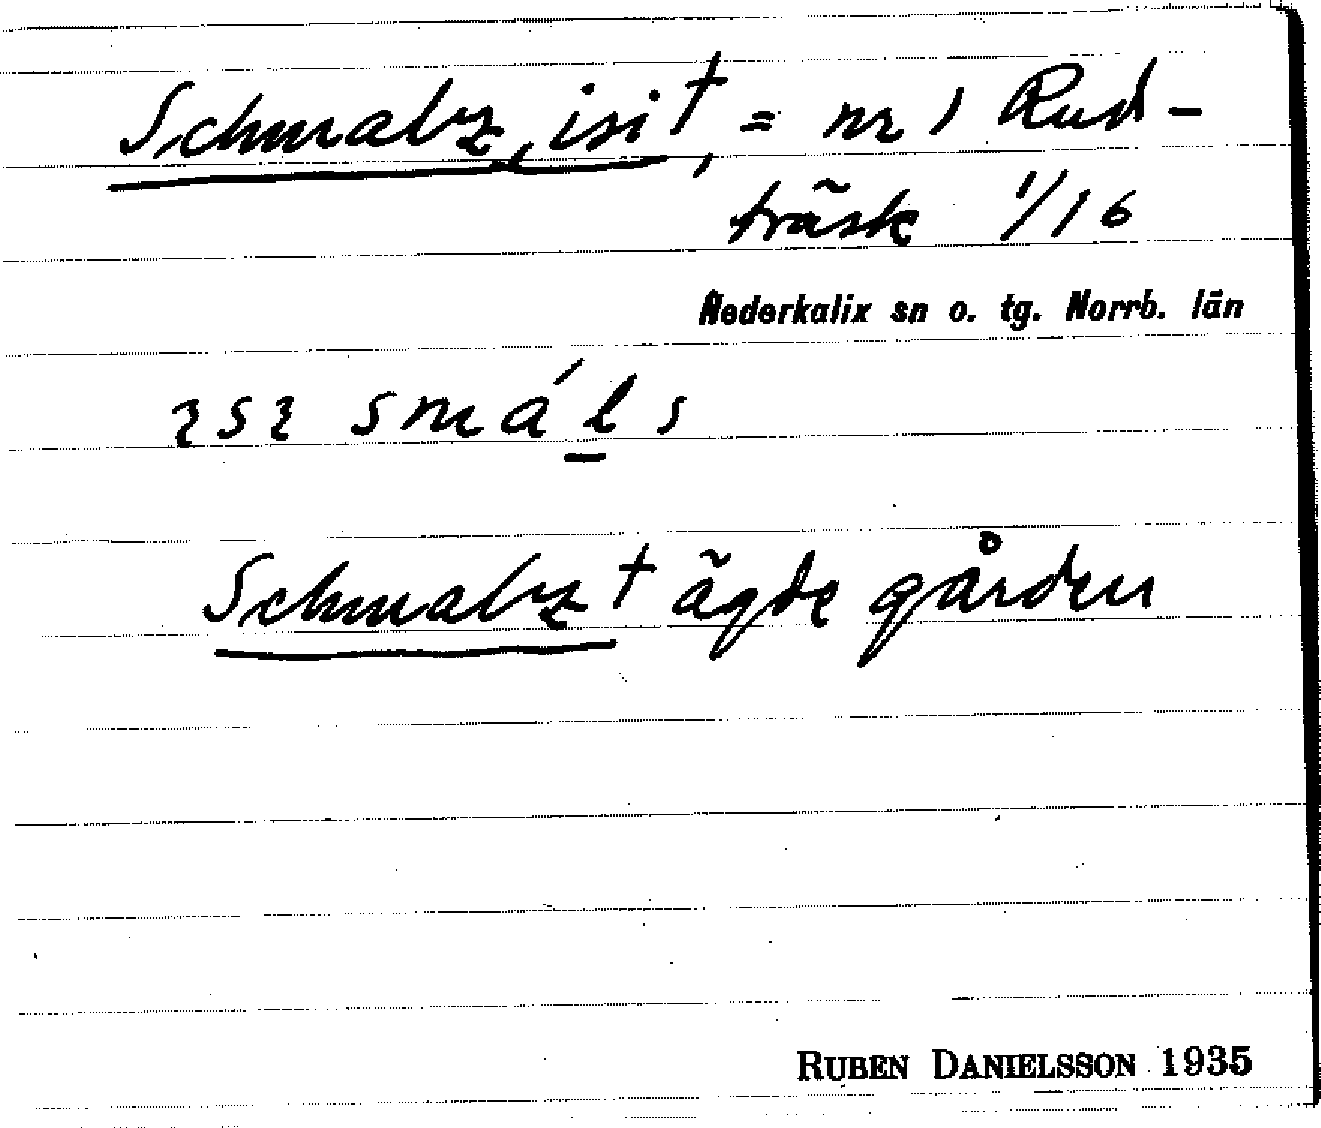 Schmalz, isi†, = nr 1 Rud-
träsk 1/16
Nederkalix sn o. tg. Norrb. län
smáls
Schmalz † ägde gården
RUBEN DANIELSSON 1935